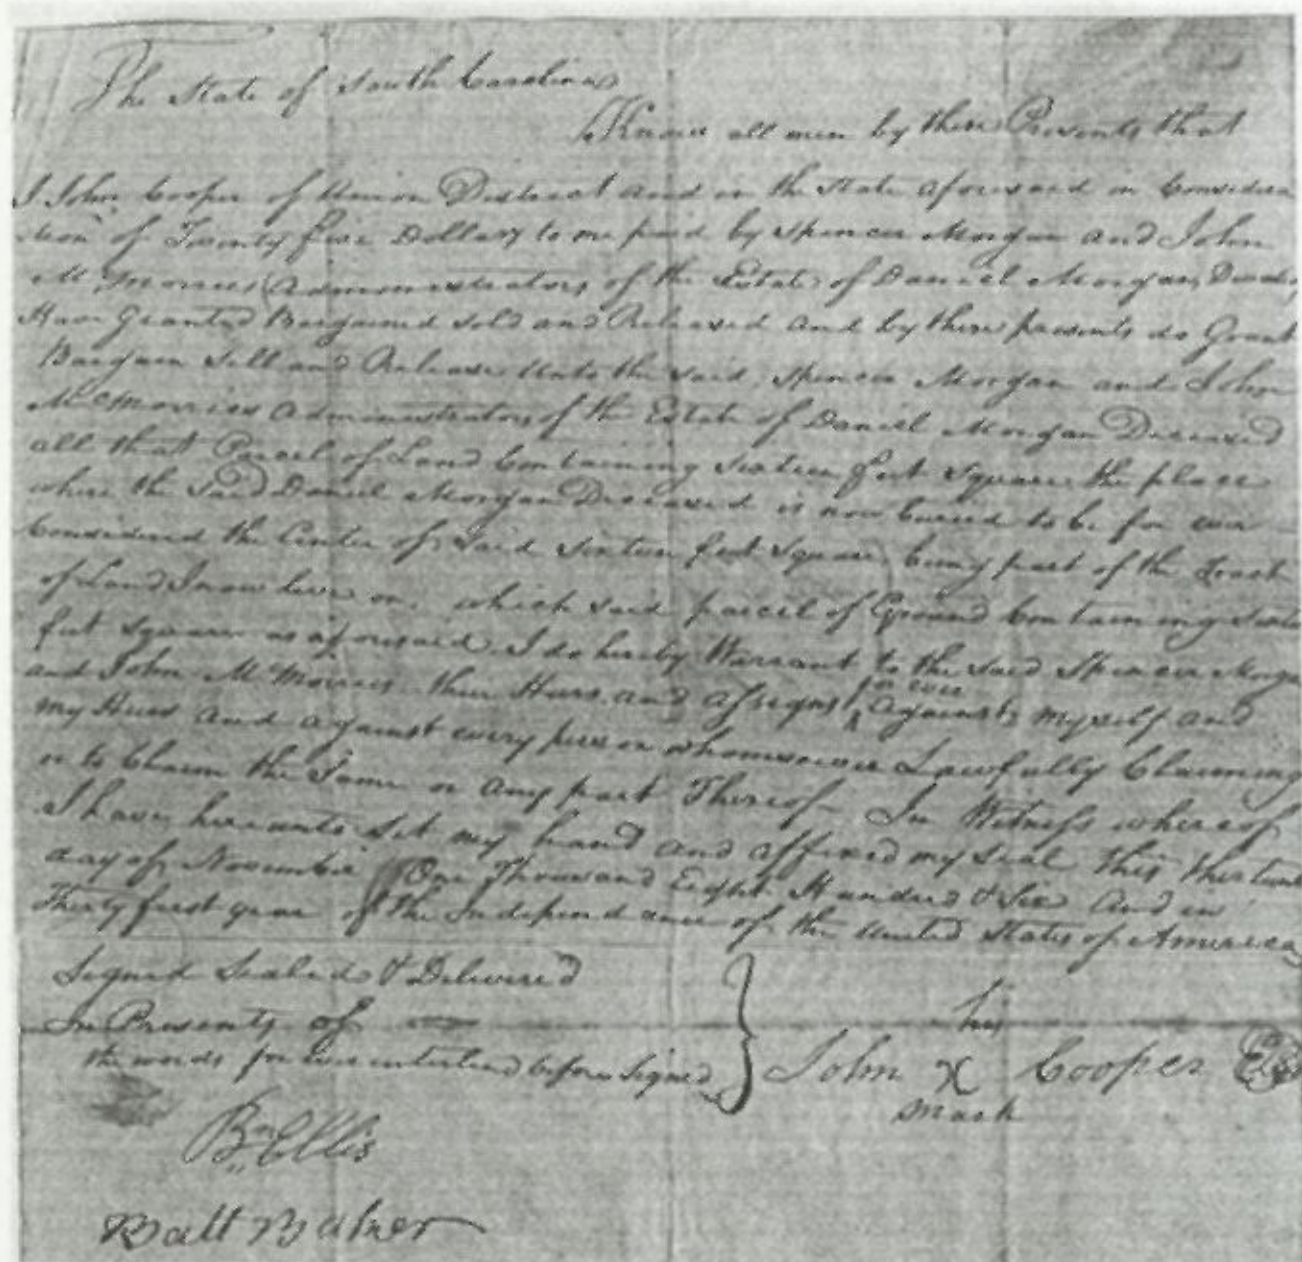 The State of South Carolina
Know all men by these Presents that
I John Cooper of Union District and in the State aforesaid in Considera
tion of Twenty five Dollars to me paid by Spencer Morgan and John
McMorries Administrators of the Estate of Daniel Morgan,
Have Granted Bargained Sold and Released and by these presents do Grant
Bargain Sell and Release Unto the said Spencer Morgan and John
McMorries Administrators of the Estate of Daniel Morgan Deceased
all that Parcel of Land Containing sixteen feet Square the place
where the said Daniel Morgan Deceased is now buried to be for ever
Considered the Center of Said sixteen feet Square being part of the tract
of Land I now live on, which said parcel of Ground Containing
feet square as aforesaid I do hereby Warrant to the said Spencer
and John McMorries their Heirs and assigns for ever against myself and
my Heirs and against every person whomsoever Lawfully Claiming
or to Claim the Same or any part Thereof In Witness whereof
I have hereunto set my hand and affixed my Seal this
day of November One Thousand Eight Hundred & Six And in
Thirty first year of the Independance of the United States of America
Signed Sealed & Deliver'd
In Presents of
the words for ever interlined before Signed
his
John X Cooper
mark
Ellis
Batt